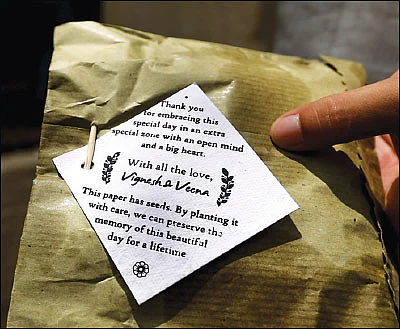 Thank you
for embracing this
special day in an extra
special zone with an open mind
and a big heart.
With all the love,
Vignesh & Veena
This paper has seeds. By planting it
with care, we can preserve the
memory of this beautiful
day for a lifetime